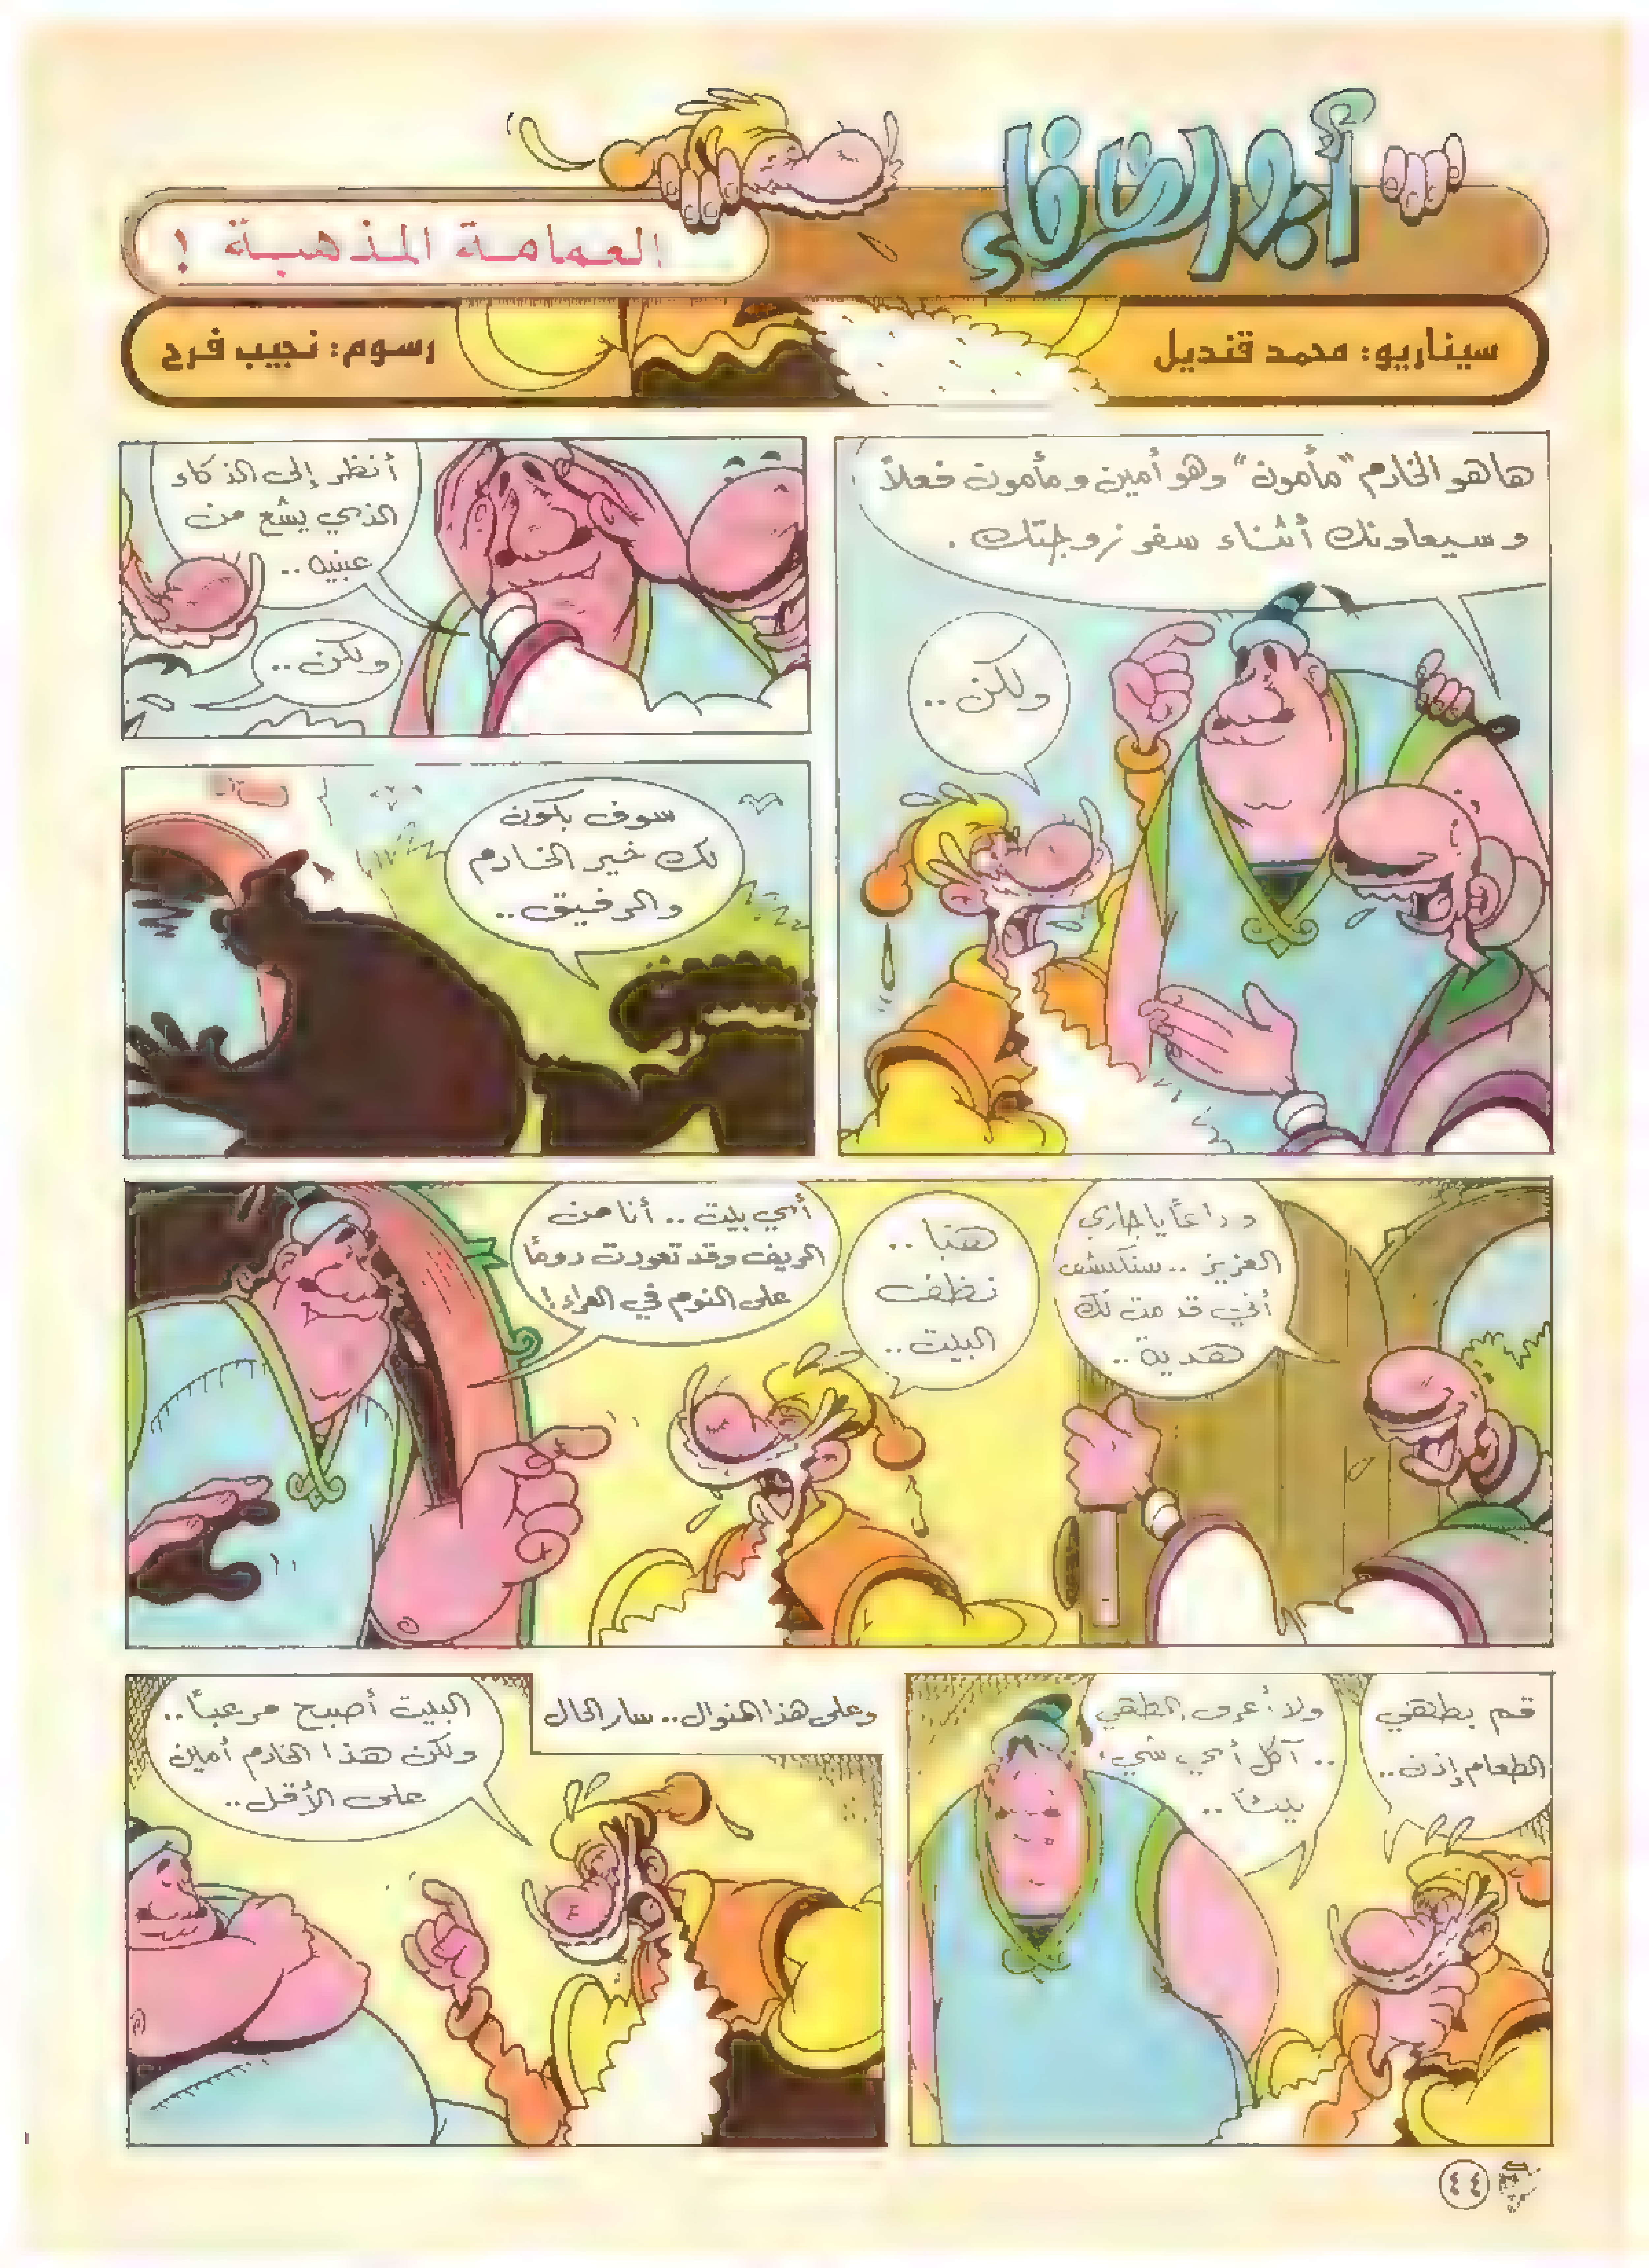 أبو الظرفاء
العمامة المذهبة !
سيناريو: محمد قنديل
رسوم: نجيب فرح
هاهو الخادم "مأمون" وهو أمين ومأمون فعلاً
وسيعاونك أثناء سفر زوجتك .
ولكن ..
أنظر إلى الذكاء
الذي يشع من
عينيه ..
ولكن ..
سوف يكون
لك خير الخادم
والرفيق ..
وداعاً يا جاري
العزيز .. ستكتشف
أني قدمت لك
هدية ..
هيا ..
نظف
البيت ..
أي بيت .. أنا من
الريف وقد تعودت دوماً
على النوم في العراء !
قم بطهي
الطعام إذن ..
ولا أعرف الطهي
.. آكل أي شيء
نيئاً ..
وعلى هذا المنوال .. سار الحال
البيت أصبح مرعباً ..
ولكن هذا الخادم أمين
على الأقل ..
٤٤